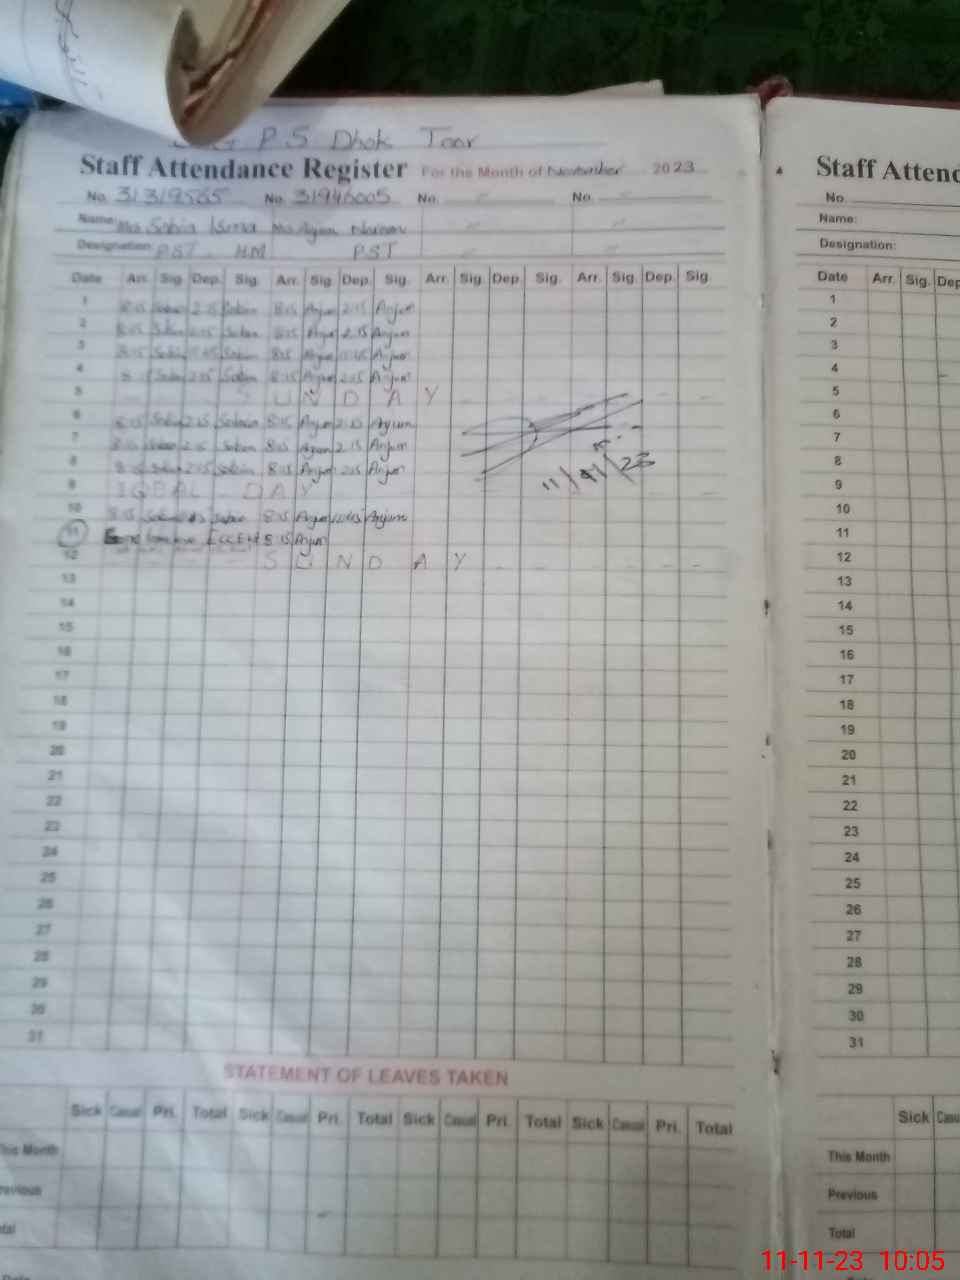 G P S Dhok Toor
Staff Attendance Register For the Month of November 2023
No. 31319565 No. 31946005 No. No.
Name: Mrs Sobia Isma Mrs Anjum
Designation: PST. HM PST
Date Arr. Sig. Dep. Sig. Arr. Sig. Dep. Sig. Arr. Sig. Dep. Sig. Arr. Sig. Dep. Sig.
1 8:15 2:15 8:15 Anjum 2:15 Anjum
2 8:15 2:15 8:15 Anjum 2:15 Anjum
3 8:15 8:15 Anjum Anjum
4 8:15 2:15 8:15 Anjum 2:15 Anjum
5 S U N D A Y
6 8:15 2:15 8:15 Anjum 2:15 Anjum
7 8:15 2:15 8:15 Anjum 2:15 Anjum
8 8:15 2:15 8:15 Anjum 2:15 Anjum
9 IQBAL DAY
10 8:15 8:15 Anjum Anjum
11 8:15 Anjum
12 S U N D A Y
13
14
15
16
17
18
19
20
21
22
23
24
25
26
27
28
29
30
31
11/11/23
STATEMENT OF LEAVES TAKEN
Sick Casual Pri. Total Sick Casual Pri. Total Sick Casual Pri. Total Sick Casual Pri. Total
This Month
Previous
Total
Staff Attend
No.
Name:
Designation:
Date Arr. Sig. Dep
1
2
3
4
5
6
7
8
9
10
11
12
13
14
15
16
17
18
19
20
21
22
23
24
25
26
27
28
29
30
31
Sick Casu
This Month
Previous
Total
11-11-23 10:05